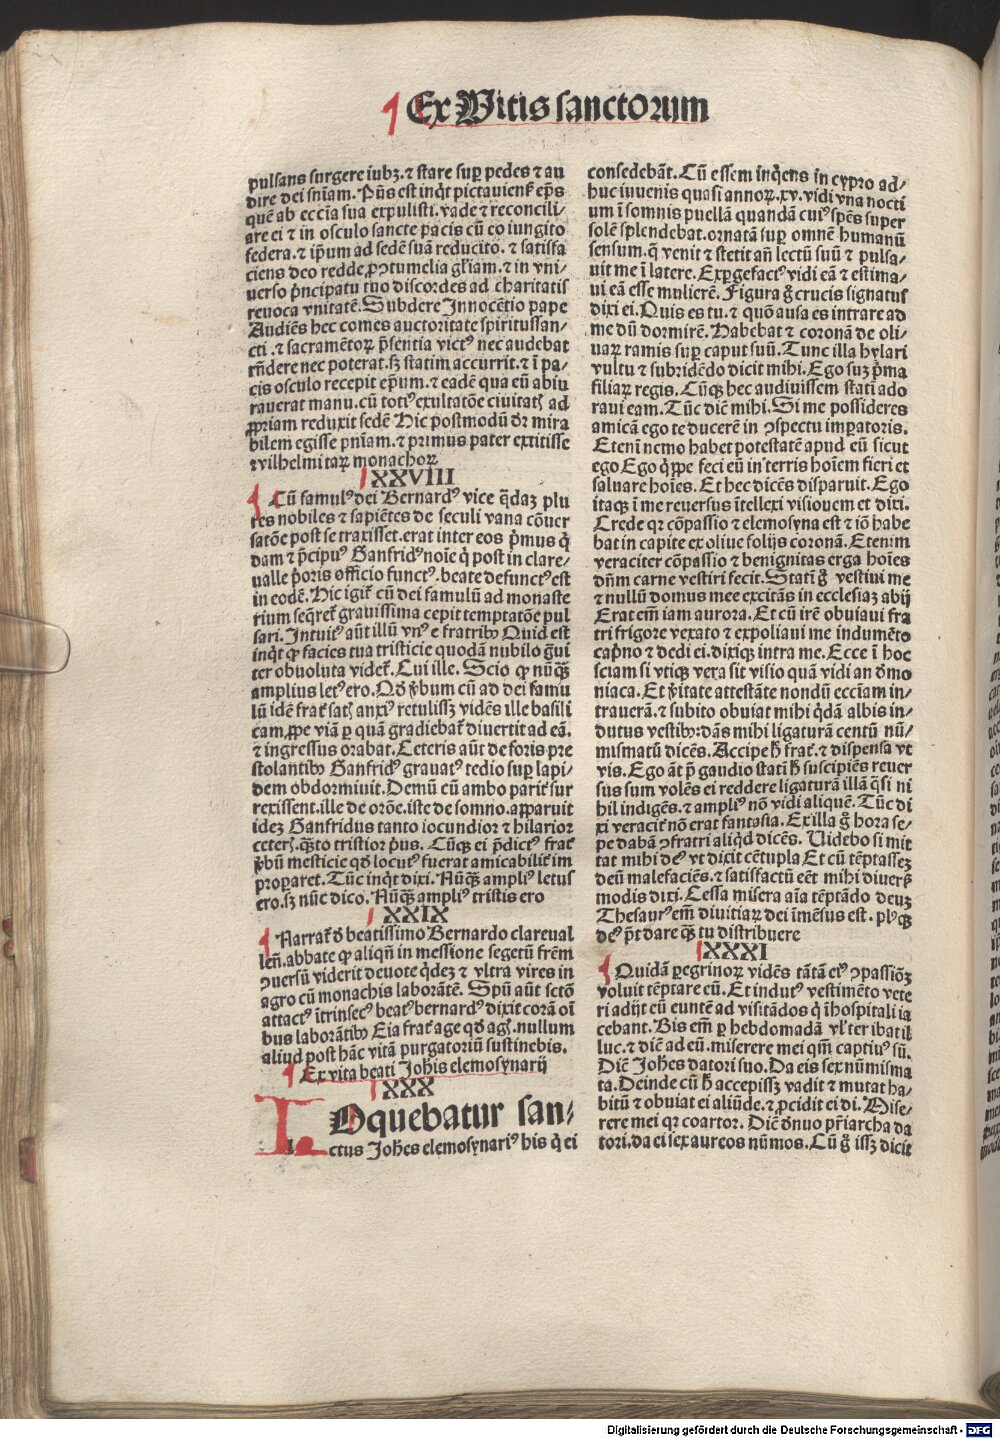 Ex Vitis sanctorum
pulsans surgere iubꝫ. ⁊ stare suꝑ pedes ⁊ au
dire dei sniam. Pn̄s est inq̇t pictauiens̄ ep̄s
quē ab eccīa sua expulisti. vade ⁊ reconcili/
are ei ⁊ in osculo sancte pacis cū eo iungito
federa. ⁊ ip̄um ad sedē suā reducito. ⁊ satisfa
ciens deo redde ꝓ ↄtumelia gl̄iam. ⁊ in vni/
uerso pncipatu tuo discordes ad charitatis
reuoca vnitatē. Subdere Innocētio pape
Audiēs hec comes auctoritate spiritussan/
cti. ⁊ sacramētoꝝ p̄sentia vict⁹ nec audebat
rn̄dere nec poterat. sꝫ statim accurrit. ⁊ ī pa/
cis osculo recepit ep̄um. ⁊ eadē qua eū abiu
rauerat manu. cū toti⁹ exultatōe ciuitatꝭ ad
ꝓpriam reduxit sedē Hic postmodū dr̄ mira
bilem egisse pnīam. ⁊ primus pater extitisse
vvilhelmitaꝝ monachoꝝ
XXVIII
Cū famul⁹ dei Bernard⁹ vice q̄daꝫ plu
res nobiles ⁊ sapiētes de seculi vana cōuer
satōe post se traxisset. erat inter eos p̄mus q̇
dam ⁊ p̄cipu⁹ Ganfrid⁹ noīe q̇ post in clare/
ualle p̄oris officio funct⁹. beate defunct⁹ est
in eodē. Hic igit̄ cū dei famulū ad monaste
rium seq̄ret̄ grauissima cepit temptatōe pul
sari. Intuit⁹ aūt illū vn⁹ e fratribꝰ Quid est
inq̇t ꝙ facies tua tristicie quodā nubilo g̃ui
ter obuoluta videt̄. Cui ille. Scio ꝙ nūꝙꝫ
amplius let⁹ ero. Qd̄ v̄bum cū ad dei famu
lū idē frat̄ satꝭ anxi⁹ retulissꝫ vidēs ille basili
cam, ꝓpe viā ꝑ quā gradiebat̄ diuertit ad eā.
⁊ ingressus orabat. Ceteris aūt de foris pre
stolantibꝰ Ganfrid⁹ grauat⁹ tedio suꝑ lapi/
dem obdormiuit. Demū cū ambo parit̄ sur
rexissent. ille de orōe. iste de somno. apparuit
ideꝫ Ganfridus tanto iocundior ⁊ hilarior
ceterꝭ. ꝙꝫto tristior p̄us. Cūꝙ ei p̄dict⁹ frat̄
v̄bū mesticie qd̄ locut⁹ fuerat amicabilit̄ im
properaret. Tūc inq̇t dixi. Nūꝙꝫ ampli⁹ letus
ero. sꝫ nūc dico. Nūꝙꝫ ampli⁹ tristis ero
XXIX
Narrat̄ d̄ beatissimo Bernardo clareual
len̄. abbate ꝙ aliqn̄ in messione segetū fr̄em
ↄuersū viderit deuote q̇deꝫ ⁊ vltra vires in
agro cū monachis laborātē. Spū aūt sctō
attact⁹ ītrinsec⁹ beat⁹ bernard⁹ dixit corā oī
bus laborātibꝰ Eia frat̄ age qd̄ agꝭ. nullum
aliud post hāc vitā purgatoriū sustinebis.
Ex vita beati Johis elemosynarij
XXX
Loquebatur san/
ctus Joh̄es elemosynari⁹ his q̇ ei
consedebāt. Cū essem inq̇ens in cypro ad/
huc iuuenis quasi annoꝝ. xv. vidi vna nocti
um ī somnis puellā quandā cui⁹ sp̄es super
solē splendebat. ornatā suꝑ omnē humanū
sensum. q̄ venit ⁊ stetit an̄ lectū suū ⁊ pulsa/
uit me ī latere. Exꝑgefact⁹ vidi eā ⁊ estima/
ui eā esse mulierē. Figura g̊ crucis signatus
dixi ei. Quis es tu. ⁊ quōo ausa es intrare ad
me dū dormirē. Habebat ⁊ coronā de oli/
uaꝝ ramis suꝑ caput suū. Tunc illa hylari
vultu ⁊ subridēdo dicit mihi. Ego suꝫ p̄ma
filiaꝝ regis. Cūꝙ hec audiuissem statī ado
raui eam. Tūc diē mihi. Si me possideres
amicā ego te ducerē in ↄspectu imperatoris.
Etenī nemo habet potestatē apud eū sicut
ego Ego q̇ppe feci eū in terris hoīem fieri et
saluare hoīes. Et hec dicēs disparuit. Ego
itaꝙ ī me reuersus ītellexi visionem et dixi.
Crede qr cōpassio ⁊ elemosyna est ⁊ iō habe
bat in capite ex oliue folijs coronā. Etenim
veraciter cōpassio ⁊ benignitas erga hoīes
dn̄m carne vestiri fecit. Statī g̊ vestiui me
⁊ nullū domus mee excitās in ecclesiaꝫ abij
Erat em̄ iam aurora. Et cū irē obuiaui fra
tri frigore vexato ⁊ expoliaui me indumēto
cap̄no ⁊ dedi ei. dixiꝙ intra me. Ecce ī hoc
sciam si vtiꝙ vera sit visio quā vidi an d̄mo
niaca. Et v̄itate attestāte nondū eccīam in/
trauerā. ⁊ subito obuiat mihi q̇dā albis in/
dutus vestibꝰ: dās mihi ligaturā centū nū/
mismatū dicēs. Accipe h̄ frat̄. ⁊ dispensa vt
vis. Ego āt p̄ gaudio statī h̄ suscipiēs reuer
sus sum volēs ei reddere ligaturā illā q̄si ni
hil indigēs. ⁊ ampli⁹ nō vidi aliquē. Tūc di
xi veracit̄ nō erat fantasia. Ex illa g̊ hora se/
pe dabā ↄfratri aliq̇d dicēs. Videbo si mit
tat mihi de⁹ vt dixit cētupla Et cū tēptasseꝫ
deū malefaciēs. ⁊ satisfactū eēt mihi diuers̄
modis dixi. Cessa misera aīa tēptādo deuꝫ
Thesaur⁹ em̄ diuitiaꝝ dei īmēsus est. pl⁹ꝙ
de⁹ p̄t dare ꝙꝫ tu distribuere
XXXI
Quidā ꝑegrinoꝝ vidēs tātā ei⁹ ↄpassiōꝫ
voluit tēptare eū. Et indut⁹ vestimēto vete
ri adijt eū euntē ad visitādos q̇ ī hospitali ia
cebant. Bis em̄ ꝑ hebdomadā vl̄ ter ibat il
luc. ⁊ diē ad eū. miserere mei qm̄ captiu⁹ sū.
Diē Joh̄es datori suo. Da eis sex nūmisma
ta. Deinde cū h̄ accepissꝫ vadit ⁊ mutat ha/
bitū ⁊ obuiat ei aliūde. ⁊ ꝓcidit ei di. Mise/
rere mei qr coartor. Diē d̄nuo pr̄iarcha da
tori. da ei sex aureos nūmos. Cū g̊ issꝫ dicit
Digitalisierung gefördert durch die Deutsche Forschungsgemeinschaft - DFG